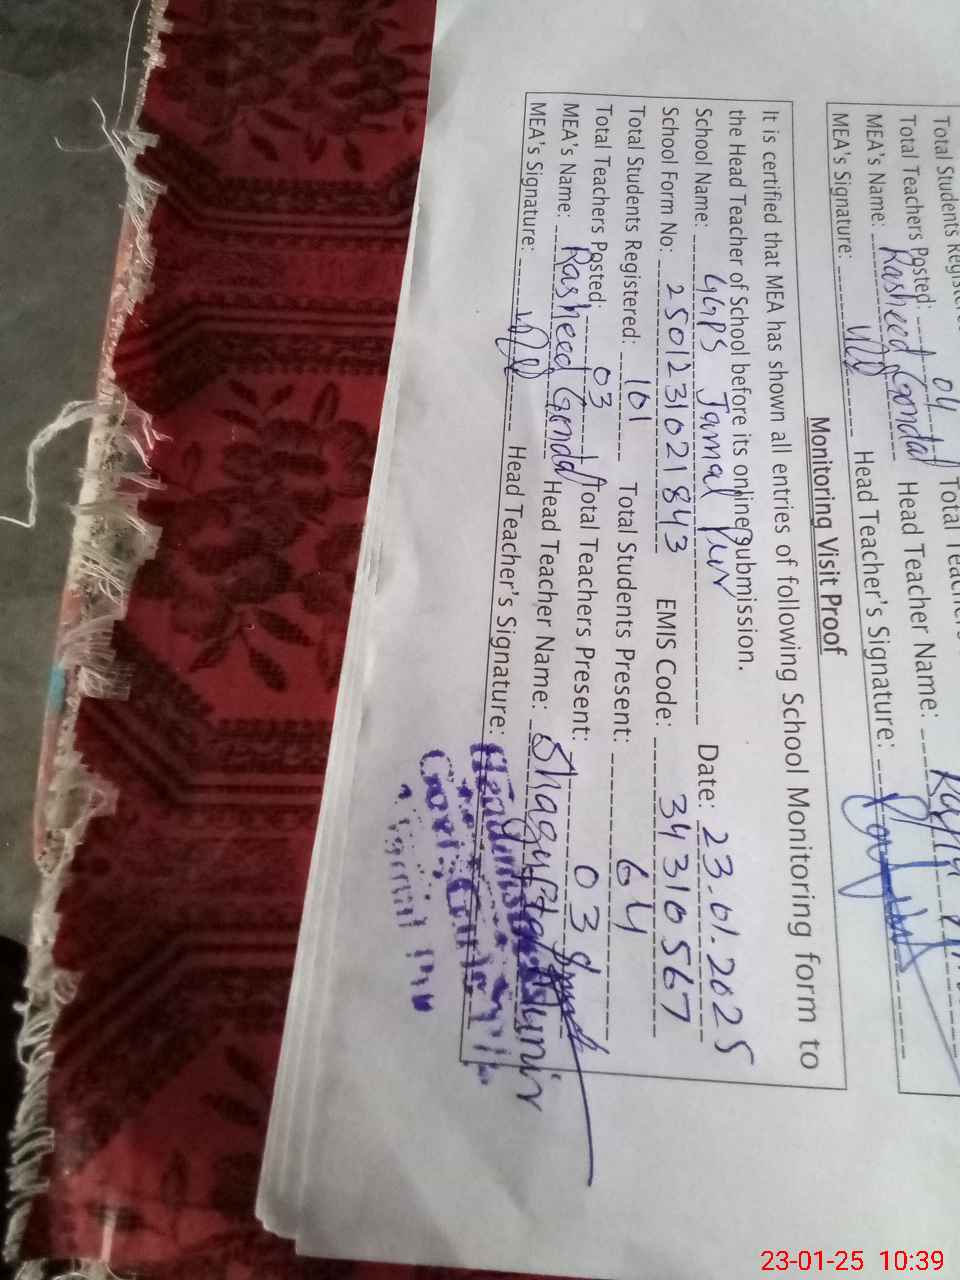 Total Students Registered:
Total Teachers Posted: 04 Total Teachers
MEA's Name: Rasheed Gondal Head Teacher Name:
MEA's Signature: Head Teacher's Signature:
Monitoring Visit Proof
It is certified that MEA has shown all entries of following School Monitoring form to
the Head Teacher of School before its online submission.
School Name: GGPS Jamal Pur Date: 23.01.2025
School Form No: 2501231021843 EMIS Code: 34310567
Total Students Registered: 101 Total Students Present: 64
Total Teachers Posted: 03 Total Teachers Present: 03
MEA's Name: Rasheed Gondal Head Teacher Name: Shagufta Munir
MEA's Signature: Head Teacher's Signature:
Headmistress
Govt. Girls
Jamal Pur
23-01-25 10:39